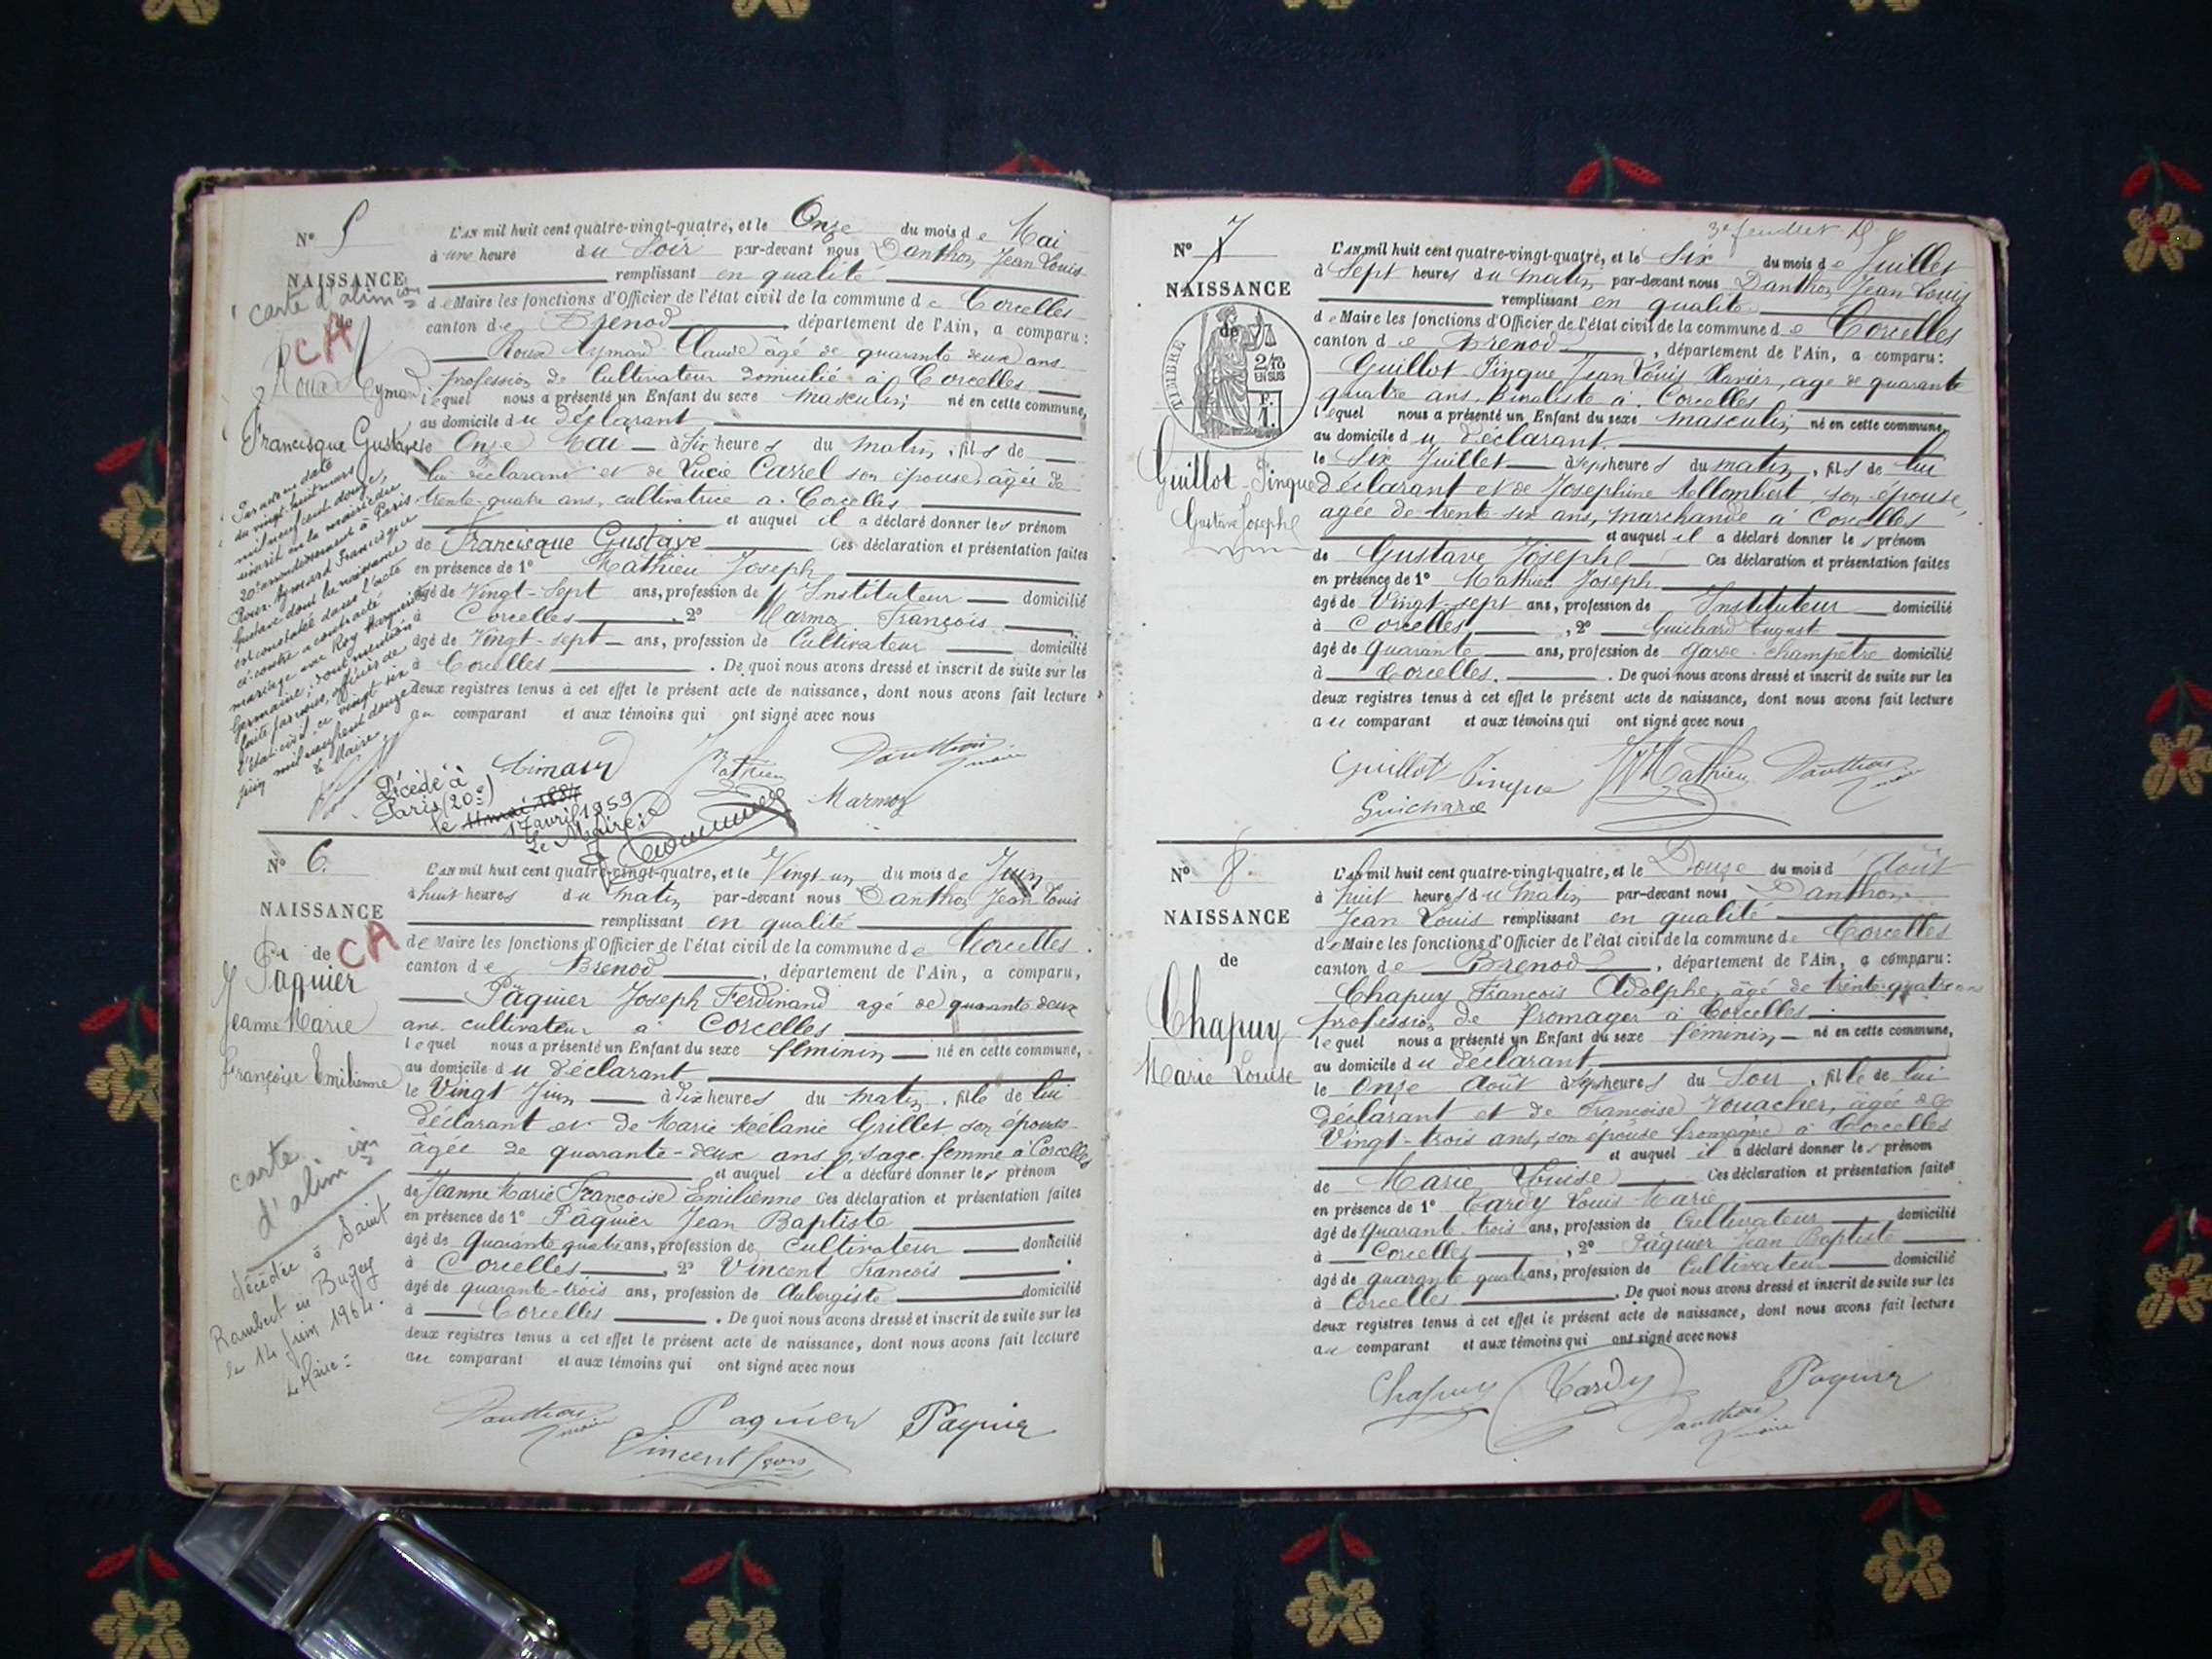 N° 5
NAISSANCE
carte d'alim ion
de
CA
Roux Aymard
Francisque Gustave
Par acte en date
du vingt huit mars
mil neuf cent douze,
inscrit en la mairie du
20e arrondissement à Paris
Roux-Aymard Francisque
Gustave dont la naissance
est constatée dans l'acte
ci-contre a contracté
mariage avec Roy Marguerite
Germaine, dont mention
faite par nous, officier de
l'état civil ce vingt six
juin mil neuf cent douze
le Maire,
L'AN mil huit cent quatre-vingt-quatre, et le Onze du mois de Mai
à une heure du Soir par-devant nous Danthon Jean Louis
remplissant en qualité
de Maire les fonctions d'Officier de l'état civil de la commune de Corcelles
canton de Brenod, département de l'Ain, a comparu:
Roux Aymard Claude âgé de quarante deux ans
profession de Cultivateur domicilié à Corcelles
lequel nous a présenté un Enfant du sexe masculin né en cette commune,
au domicile du déclarant
le Onze Mai à Six heures du matin, fils de
lui déclarant et de Lucie Carrel son épouse, âgée de
trente-quatre ans, cultivatrice a Corcelles
et auquel il a déclaré donner les prénom
de Francisque Gustave Ces déclaration et présentation faites
en présence de 1° Mathieu Joseph
âgé de Vingt-Sept ans, profession de Instituteur domicilié
à Corcelles, 2° Marmoz François
âgé de Vingt-sept ans, profession de Cultivateur domicilié
à Corcelles. De quoi nous avons dressé et inscrit de suite sur les
deux registres tenus à cet effet le présent acte de naissance, dont nous avons fait lecture
au comparant et aux témoins qui ont signé avec nous
Aimard Mathieu Danthon maire
Marmoz
Décédé à
Paris (20e)
le 11 mai 1884
17 avril 1959
Le Maire:
N° 6.
NAISSANCE
de CA
Pâquier
Jeanne Marie
Françoise Emilienne
carte
d'alim ion
décédée à Saint
Rambert en Bugey
le 14 Juin 1964.
Le Maire:
L'AN mil huit cent quatre-vingt-quatre, et le Vingt-un du mois de Juin
à huit heures du matin par-devant nous Danthon Jean Louis
remplissant en qualité
de Maire les fonctions d'Officier de l'état civil de la commune de Corcelles
canton de Brenod, département de l'Ain, a comparu,
Pâquier Joseph Ferdinand agé de quarante deux
ans cultivateur à Corcelles
lequel nous a présenté un Enfant du sexe féminin né en cette commune,
au domicile du déclarant
le Vingt Juin à dix heures du matin, fille de lui
déclarant et de Marie Mélanie Grillet son épouse
âgée de quarante-deux ans, sage femme à Corcelles
et auquel il a déclaré donner les prénom
de Jeanne Marie Françoise Emilienne Ces déclaration et présentation faites
en présence de 1° Pâquier Jean Baptiste
âgé de Quarante quatre ans, profession de cultivateur domicilié
à Corcelles, 2° Vincent François
âgé de quarante-trois ans, profession de Aubergiste domicilié
à Corcelles. De quoi nous avons dressé et inscrit de suite sur les
deux registres tenus à cet effet le présent acte de naissance, dont nous avons fait lecture
au comparant et aux témoins qui ont signé avec nous
Danthon maire Paquier Paquier
Vincent fçois
3e feuillet
N° 7
NAISSANCE
de
TIMBRE
2/10
EN SUS
F.
1.
Guillot-Pingue
Gustave Josephe
L'AN mil huit cent quatre-vingt-quatre, et le Six du mois de Juillet
à Sept heures du matin par-devant nous Danthon Jean Louis
remplissant en qualité
de Maire les fonctions d'Officier de l'état civil de la commune de Corcelles
canton de Brenod, département de l'Ain, a comparu:
Guillot Pingue Jean Louis Xavier, age de quarante
quatre ans, Buraliste à Corcelles
lequel nous a présenté un Enfant du sexe masculin né en cette commune,
au domicile du déclarant
le Six Juillet à sept heures du matin, fils de lui
déclarant et de Josephine Mellombert, son épouse,
agée de trente-six ans, marchande à Corcelles
et auquel il a déclaré donner les prénom
de Gustave Josephe Ces déclaration et présentation faites
en présence de 1° Mathieu Joseph
âgé de Vingt-sept ans, profession de Instituteur domicilié
à Corcelles, 2° Guichard Auguste
âgé de quarante ans, profession de garde-champêtre domicilié
à Corcelles. De quoi nous avons dressé et inscrit de suite sur les
deux registres tenus à cet effet le présent acte de naissance, dont nous avons fait lecture
au comparant et aux témoins qui ont signé avec nous
Guillot Pingue Mathieu Danthon maire
Guichard
N° 8.
NAISSANCE
de
Chapuy
Marie Louise
L'AN mil huit cent quatre-vingt-quatre, et le Douze du mois d'Août
à huit heures du matin par-devant nous Danthon
Jean Louis remplissant en qualité
de Maire les fonctions d'Officier de l'état civil de la commune de Corcelles
canton de Brenod, département de l'Ain, a comparu:
Chapuy François Adolphe, âgé de trente-quatre ans
profession de fromager à Corcelles
lequel nous a présenté un Enfant du sexe féminin né en cette commune,
au domicile du déclarant
le Onze Août à sept heures du Soir, fille de lui
déclarant et de Françoise Vouacher, âgée de
Vingt-trois ans, son épouse fromagère à Corcelles
et auquel il a déclaré donner les prénom
de Marie Louise Ces déclaration et présentation faites
en présence de 1° Tardy Louis Marie
âgé de quarante-trois ans, profession de Cultivateur domicilié
à Corcelles, 2° Pâquier Jean Baptiste
âgé de quarante quatre ans, profession de Cultivateur domicilié
à Corcelles. De quoi nous avons dressé et inscrit de suite sur les
deux registres tenus à cet effet le présent acte de naissance, dont nous avons fait lecture
au comparant et aux témoins qui ont signé avec nous
Chapuy Tardy Paquier
Danthon maire